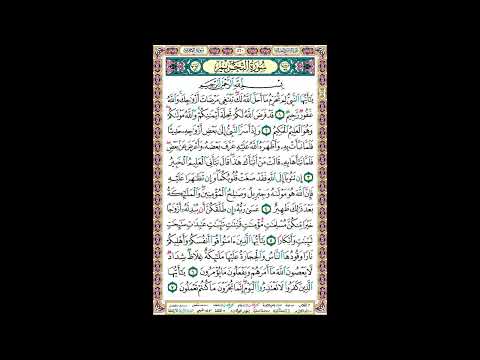 سُورَةُ التَّحْرِيمِ
بِسْمِ اللَّهِ الرَّحْمَٰنِ الرَّحِيمِ
يَا أَيُّهَا النَّبِيُّ لِمَ تُحَرِّمُ مَا أَحَلَّ اللَّهُ لَكَ تَبْتَغِي مَرْضَاتَ أَزْوَاجِكَ وَاللَّهُ
غَفُورٌ رَّحِيمٌ ١ قَدْ فَرَضَ اللَّهُ لَكُمْ تَحِلَّةَ أَيْمَانِكُمْ وَاللَّهُ مَوْلَاكُمْ
وَهُوَ الْعَلِيمُ الْحَكِيمُ ٢ وَإِذْ أَسَرَّ النَّبِيُّ إِلَىٰ بَعْضِ أَزْوَاجِهِ حَدِيثًا
فَلَمَّا نَبَّأَتْ بِهِ وَأَظْهَرَهُ اللَّهُ عَلَيْهِ عَرَّفَ بَعْضَهُ وَأَعْرَضَ عَن بَعْضٍ
فَلَمَّا نَبَّأَهَا بِهِ قَالَتْ مَنْ أَنبَأَكَ هَٰذَا قَالَ نَبَّأَنِيَ الْعَلِيمُ الْخَبِيرُ
٣ إِن تَتُوبَا إِلَى اللَّهِ فَقَدْ صَغَتْ قُلُوبُكُمَا وَإِن تَظَاهَرَا عَلَيْهِ
فَإِنَّ اللَّهَ هُوَ مَوْلَاهُ وَجِبْرِيلُ وَصَالِحُ الْمُؤْمِنِينَ وَالْمَلَائِكَةُ
بَعْدَ ذَٰلِكَ ظَهِيرٌ ٤ عَسَىٰ رَبُّهُ إِن طَلَّقَكُنَّ أَن يُبْدِلَهُ أَزْوَاجًا
خَيْرًا مِّنكُنَّ مُسْلِمَاتٍ مُّؤْمِنَاتٍ قَانِتَاتٍ تَائِبَاتٍ عَابِدَاتٍ سَائِحَاتٍ
ثَيِّبَاتٍ وَأَبْكَارًا ٥ يَا أَيُّهَا الَّذِينَ آمَنُوا قُوا أَنفُسَكُمْ وَأَهْلِيكُمْ
نَارًا وَقُودُهَا النَّاسُ وَالْحِجَارَةُ عَلَيْهَا مَلَائِكَةٌ غِلَاظٌ شِدَادٌ
لَّا يَعْصُونَ اللَّهَ مَا أَمَرَهُمْ وَيَفْعَلُونَ مَا يُؤْمَرُونَ ٦ يَا أَيُّهَا
الَّذِينَ كَفَرُوا لَا تَعْتَذِرُوا الْيَوْمَ إِنَّمَا تُجْزَوْنَ مَا كُنتُمْ تَعْمَلُونَ ٧